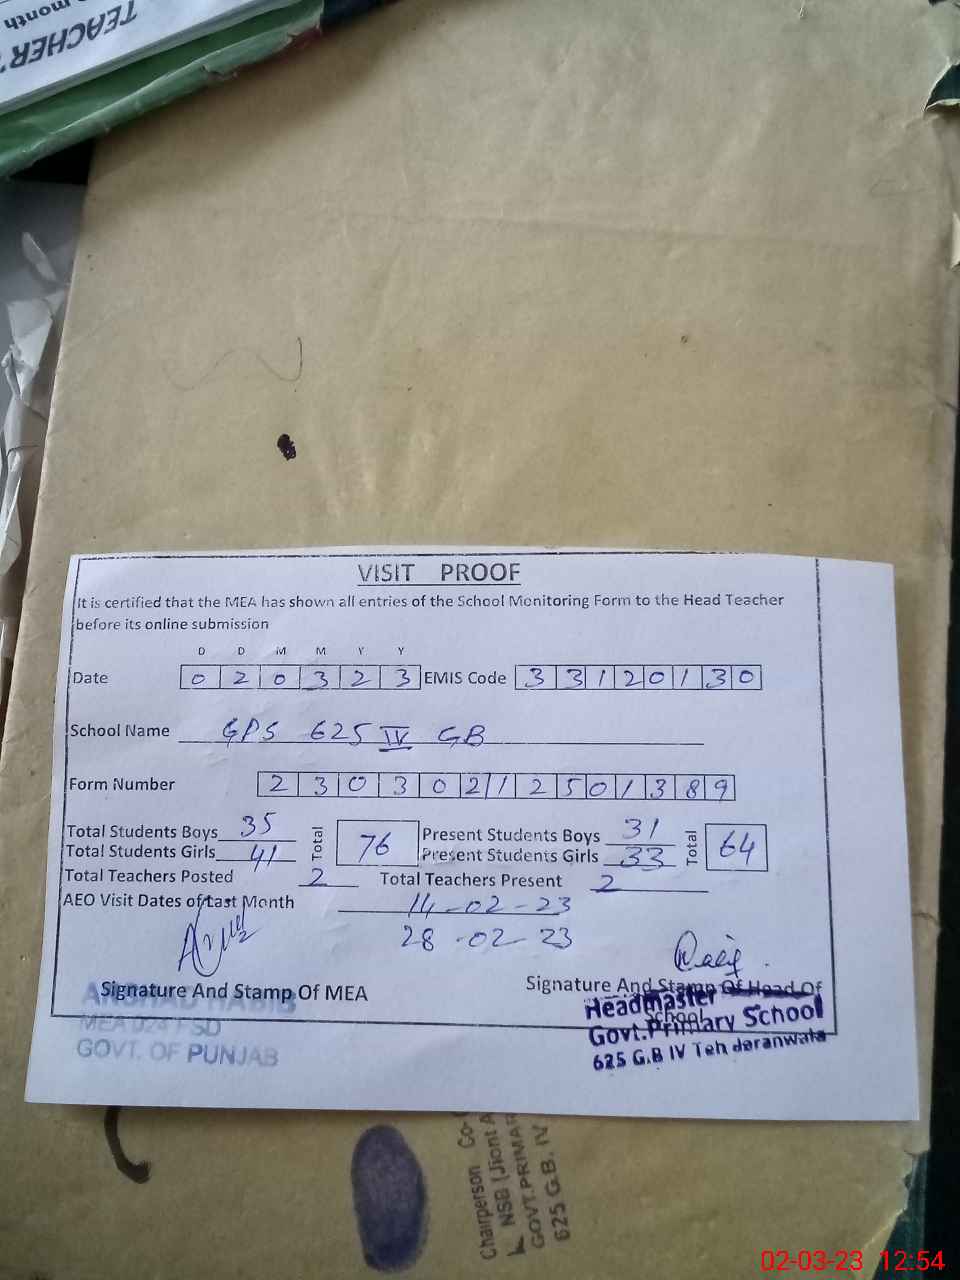 month
TEACHER'
VISIT PROOF
It is certified that the MEA has shown all entries of the School Monitoring Form to the Head Teacher
before its online submission
D D M M Y Y
Date 0 2 0 3 2 3 EMIS Code 3 3 1 2 0 1 3 0
School Name GPS 625 IV GB
Form Number 2 3 0 3 0 2 1 2 5 0 1 3 8 9
Total Students Boys 35 Total 76 Present Students Boys 31 Total 64
Total Students Girls 41 Present Students Girls 33
Total Teachers Posted 2 Total Teachers Present 2
AEO Visit Dates of Last Month 14-02-23
28-02-23
Signature And Stamp Of MEA
Signature And Stamp Of Head Of
School
ARSHAD HABIB
MEA 024 FSD
GOVT. OF PUNJAB
Headmaster
Govt.Primary School
625 G.B IV Teh Jaranwala
Chairperson Co-
NSB (Jiont A
GOVT.PRIMAR
625 G.B. IV
02-03-23 12:54